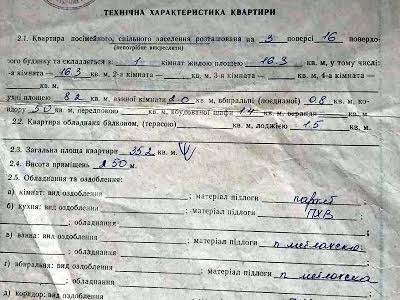 ТЕХНІЧНА ХАРАКТЕРИСТИКА КВАРТИРИ
2.1. Квартира посімейного, спільного заселення розташована на 3 поверсі 16 поверхо-
(непотрібне викреслити)
вого будинку та складається з 1 кімнат жилою площею 16.3 кв. м, у тому числі:
-а кімната — 16.3 кв. м, 2-а кімната — кв. м, 3-а кімната — кв. м, 4-а кімната —
кв. м.
кухні площею 8.2 кв. м, ванної кімнати 2.0 кв. м, вбиральні (поєднаної) 0.8 кв. м, ко-
ридору 5.0 кв. м, передпокою кв. м, вбудованої шафи 1.4 кв. м, веранди кв. м
2.2. Квартира обладнана балконом, (терасою) кв. м, лоджією 1.5 кв. м.
2.3. Загальна площа квартири 35.2 кв. м.
2.4. Висота приміщень 2.50 м.
2.5. Обладнання та оздоблення:
а) кімнат: вид оздоблення ; матеріал підлоги паркет
б) кухня: вид оздоблення ; матеріал підлоги ПХВ
; обладнання
в) ванна: вид оздоблення ; матеріал підлоги п метлахска
; обладнання
г) вбиральня: вид оздоблення ; матеріал підлоги п метлахска
; обладнання
д) коридор: вид оздоблення